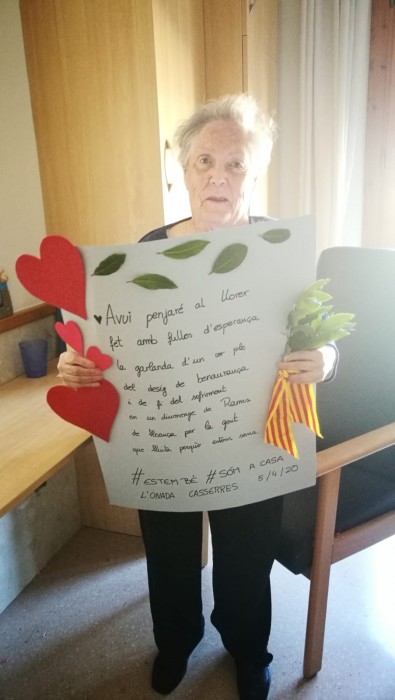 Avui penjaré al llorer
fet amb fulles d'esperança
la garlanda d'un cor ple
del desig de benaurança
i de fi del sofriment
en un diumenge de Rams
de lloança per la gent
que lluita perquè estem sans
#ESTEM BÉ #SÓM A CASA
L'ONADA CASSERRES 5/4/20